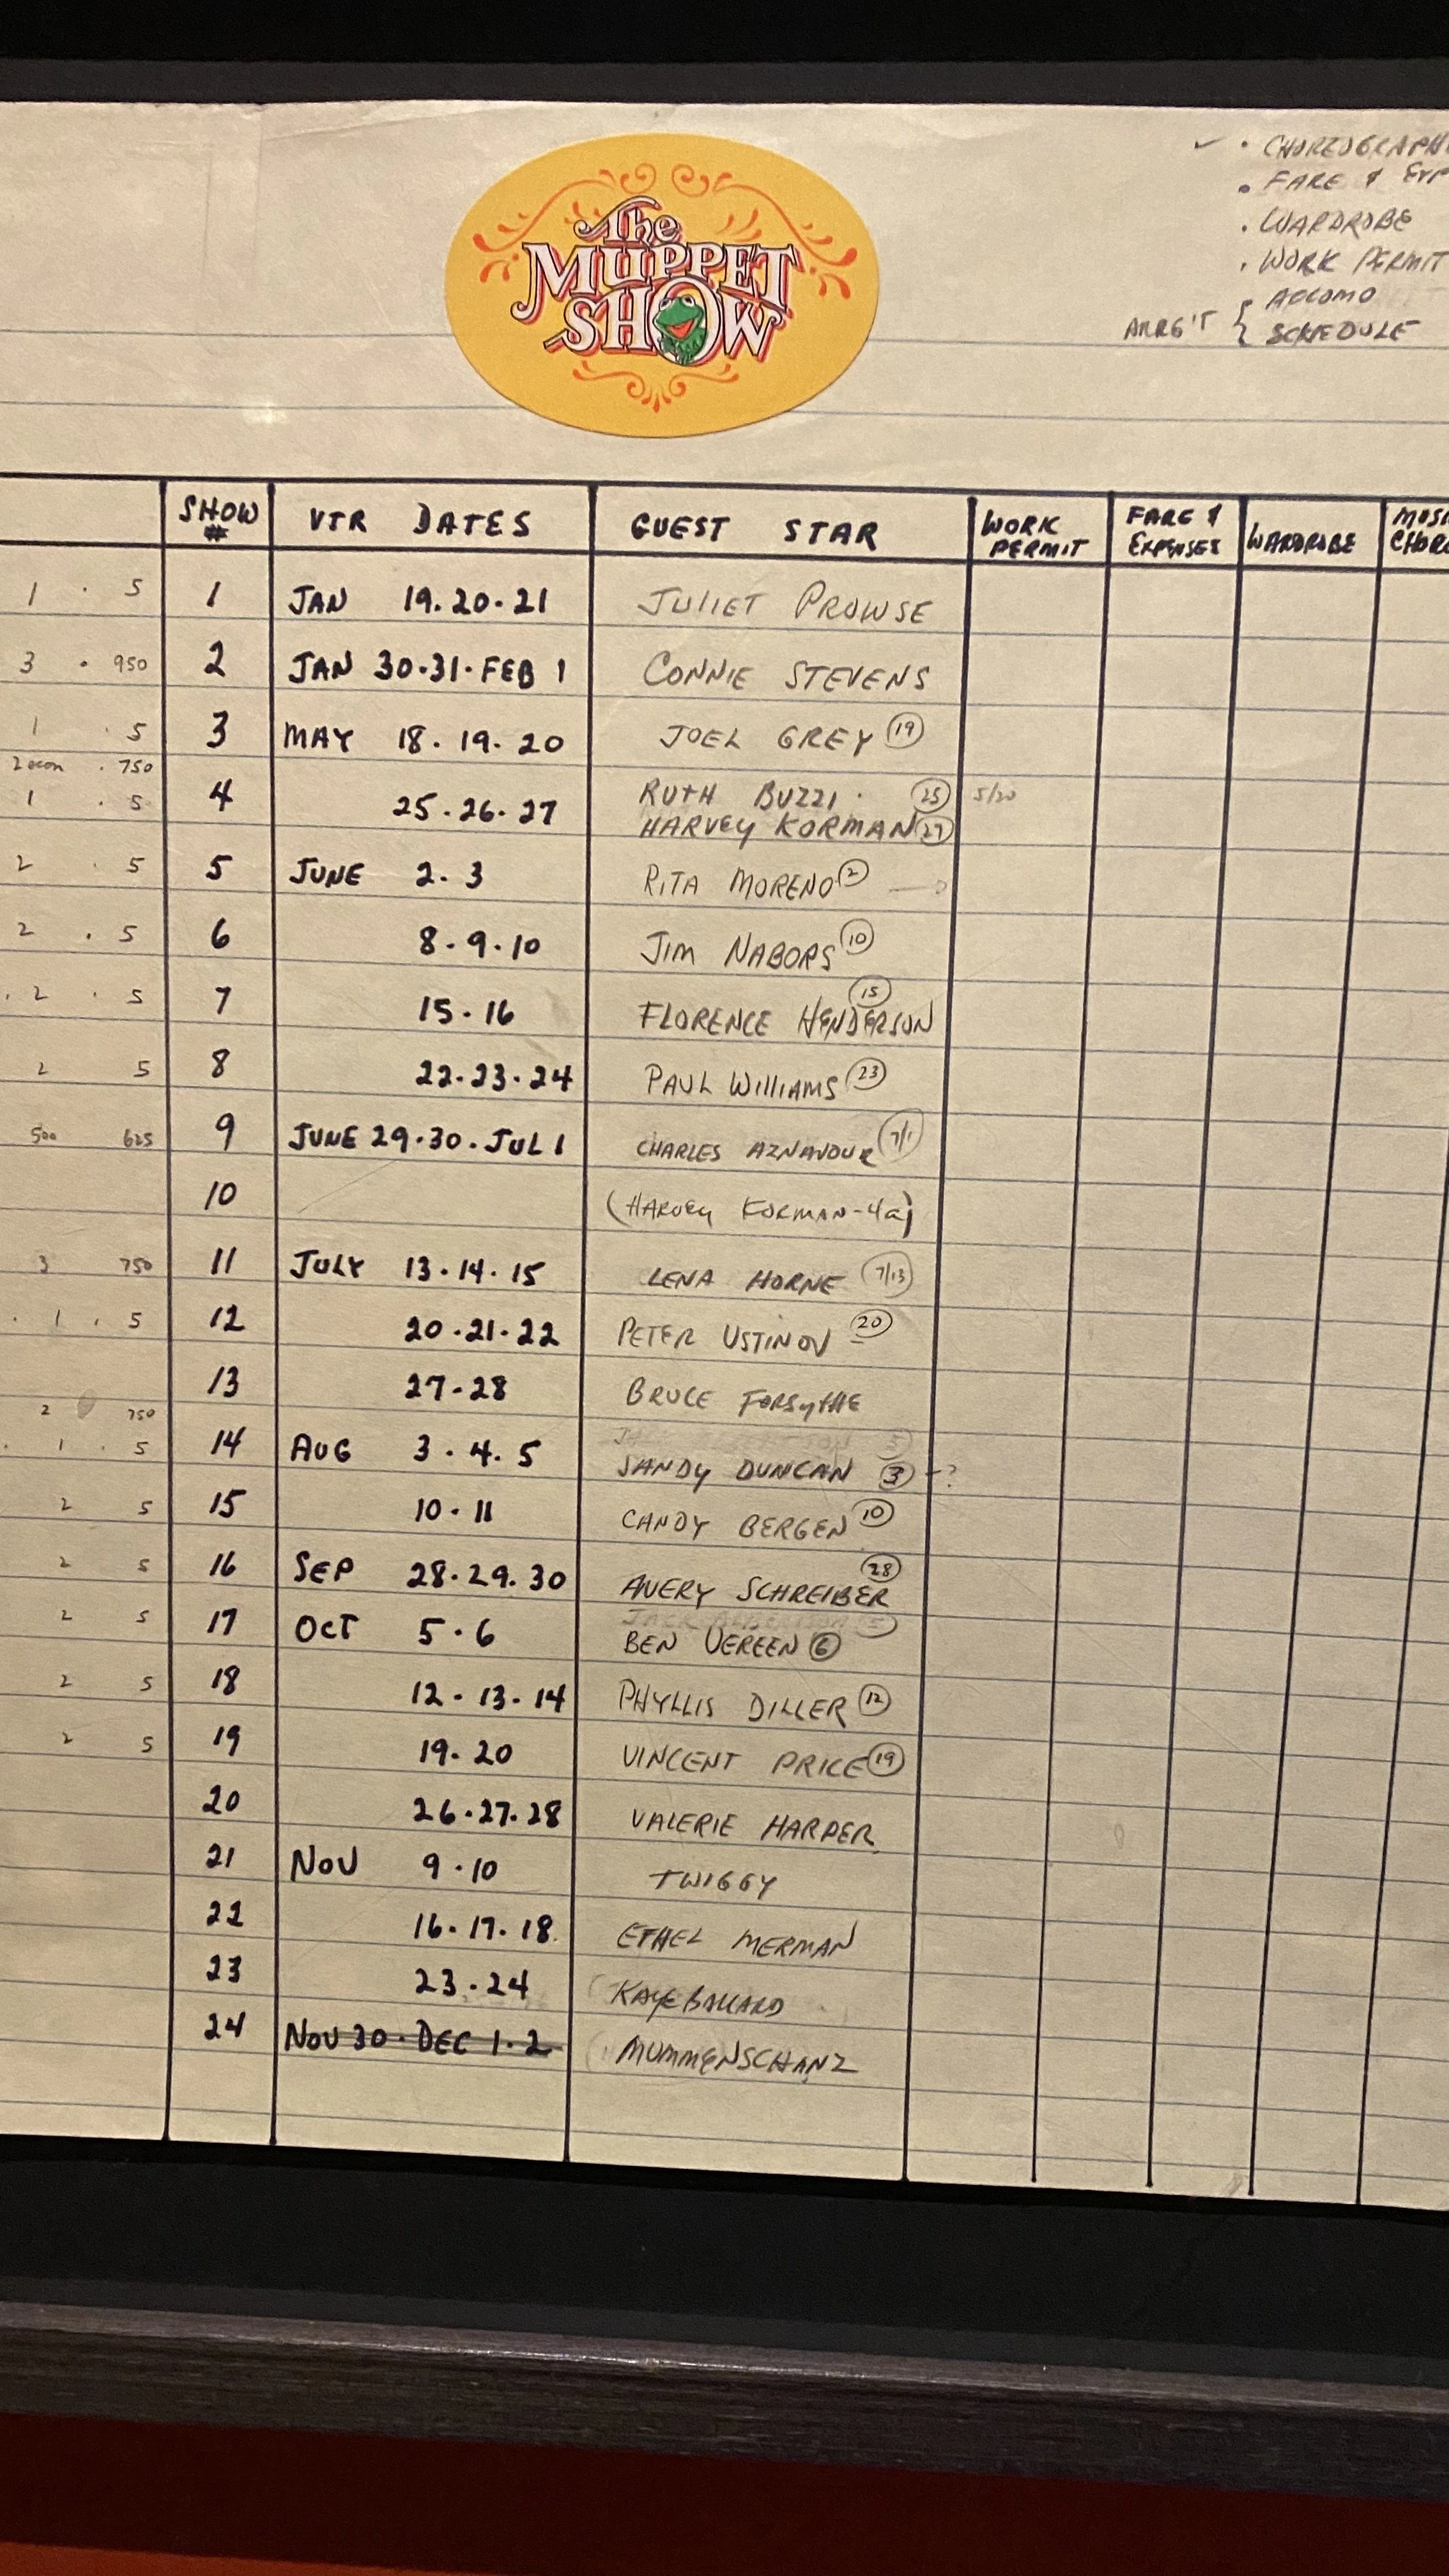 ✓ • CHOREOGRAPH
• FARE & EXP
• WARDROBE
• WORK PERMIT
ACCOMO
ARRG'T { SCHEDULE
The
MUPPET
SHOW
SHOW # VTR DATES GUEST STAR WORK PERMIT FARE & EXPENSES WARDROBE MUSI CHORE
1 · 5 1 JAN 19·20·21 JULIET PROWSE
3 · 950 2 JAN 30·31·FEB 1 CONNIE STEVENS
1 · 5 3 MAY 18·19·20 JOEL GREY 19
2 econ · 750
1 · 5 4 25·26·27 RUTH BUZZI · 25 5/20
HARVEY KORMAN 27
2 · 5 5 JUNE 2·3 RITA MORENO 2
2 · 5 6 8·9·10 JIM NABORS 10
· 2 · 5 7 15·16 FLORENCE HENDERSON 15
2 5 8 22·23·24 PAUL WILLIAMS 23
500 625 9 JUNE 29·30·JUL 1 CHARLES AZNAVOUR 7/1
10 (HARVEY KORMAN-4a)
3 750 11 JULY 13·14·15 LENA HORNE 7/13
· 1 · 5 12 20·21·22 PETER USTINOV 20
13 27-28 BRUCE FORSYTHE
2 750
· 1 · 5 14 AUG 3·4·5 SANDY DUNCAN 3 - ?
2 5 15 10·11 CANDY BERGEN 10
2 5 16 SEP 28·29·30 AVERY SCHREIBER 28
2 5 17 OCT 5·6 BEN VEREEN 6
2 5 18 12·13·14 PHYLLIS DILLER 12
2 5 19 19·20 VINCENT PRICE 19
20 26·27·28 VALERIE HARPER
21 NOV 9·10 TWIGGY
22 16·17·18 ETHEL MERMAN
23 23·24 KAYE BALLARD
24 NOV 30·DEC 1·2 MUMMENSCHANZ